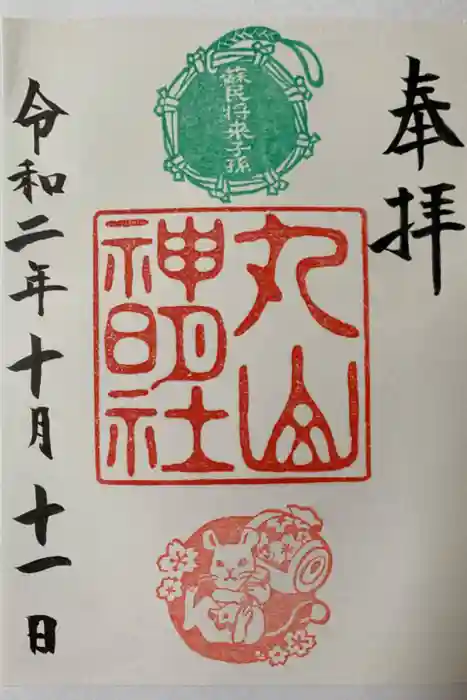 奉拝
蘇民将来子孫
丸山
神明社
令和二年十月十一日